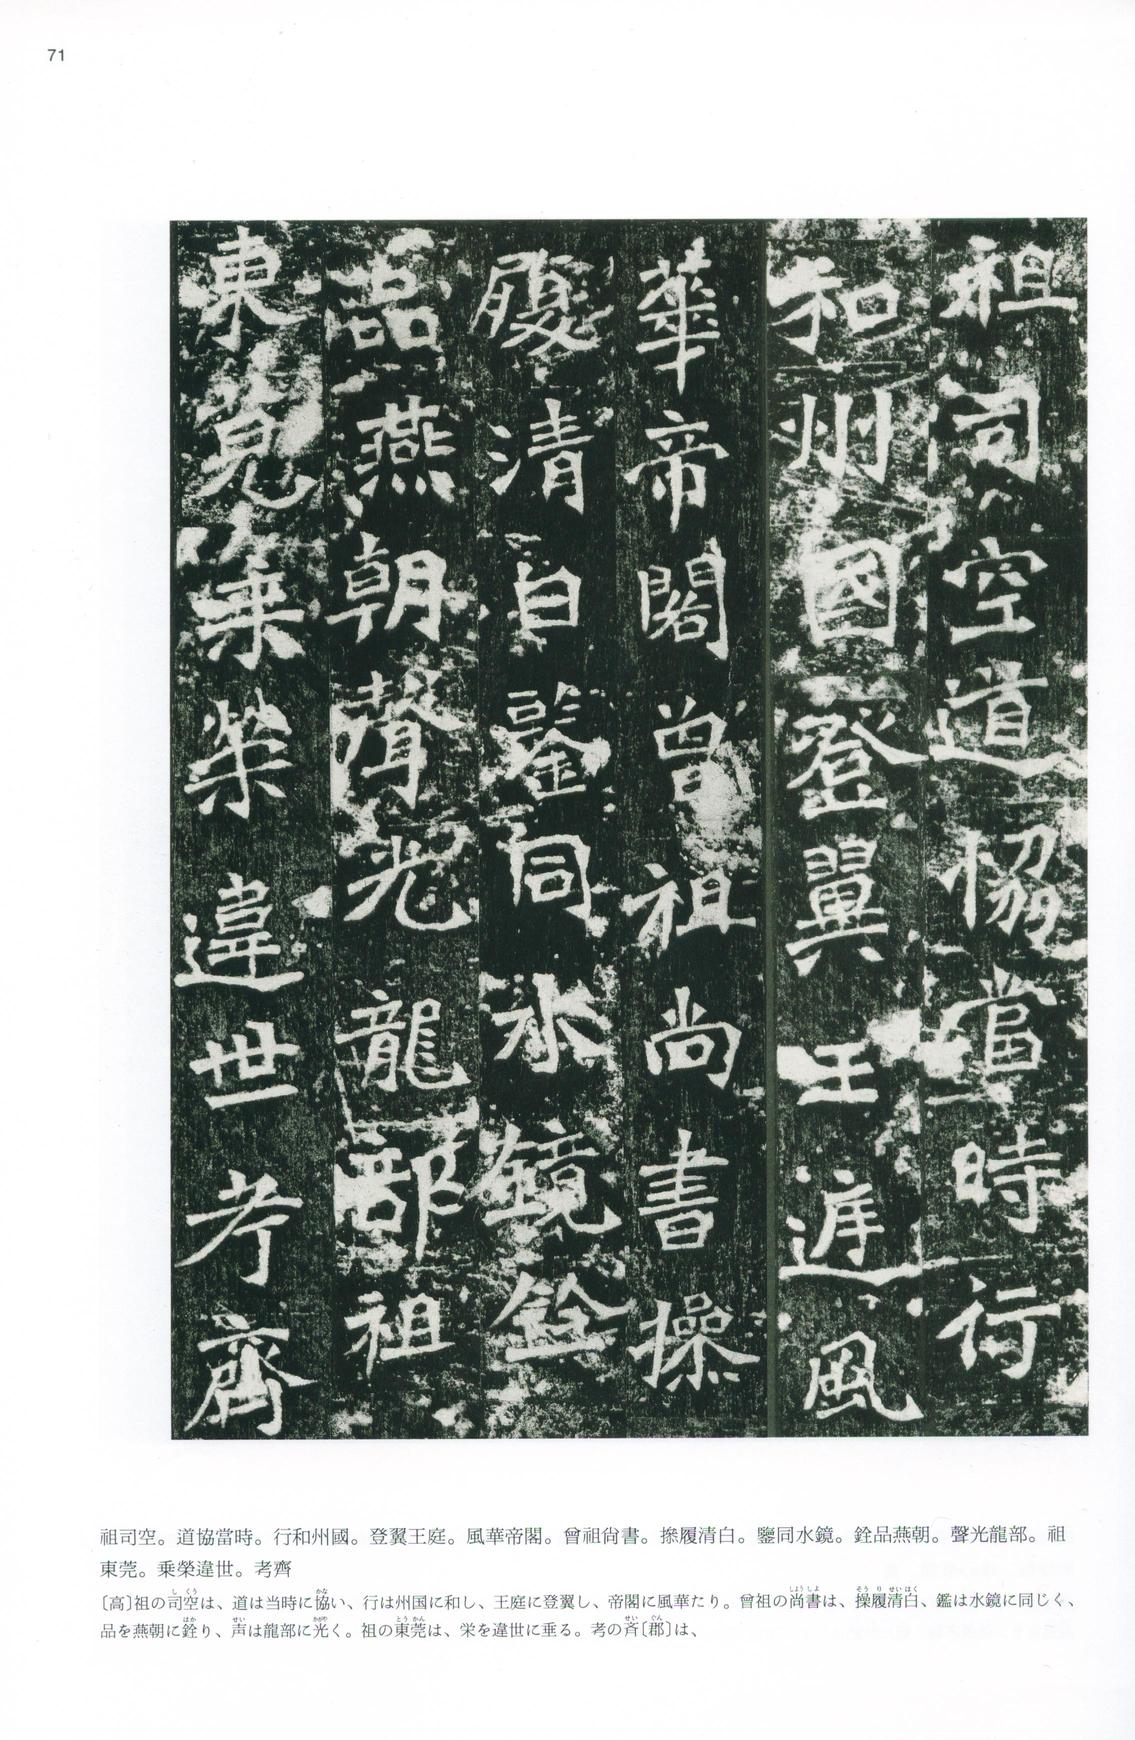 71
祖司空道協當時行
和州國登翼王庭風
華帝閣曽祖尚書操
履清白鑒同水鏡銓
品燕朝聲光龍部祖
東莞乗榮違世考齊
祖司空。道協當時。行和州國。登翼王庭。風華帝閣。曾祖尙書。操履清白。鑒同水鏡。銓品燕朝。聲光龍部。祖
東莞。乗榮違世。考齊
〔高〕祖の司空は、道は当時に協い、行は州国に和し、王庭に登翼し、帝閣に風華たり。曾祖の尚書は、操履清白、鑑は水鏡に同じく、
品を燕朝に銓り、声は龍部に光く。祖の東莞は、栄を違世に垂る。考の斉〔郡〕は、